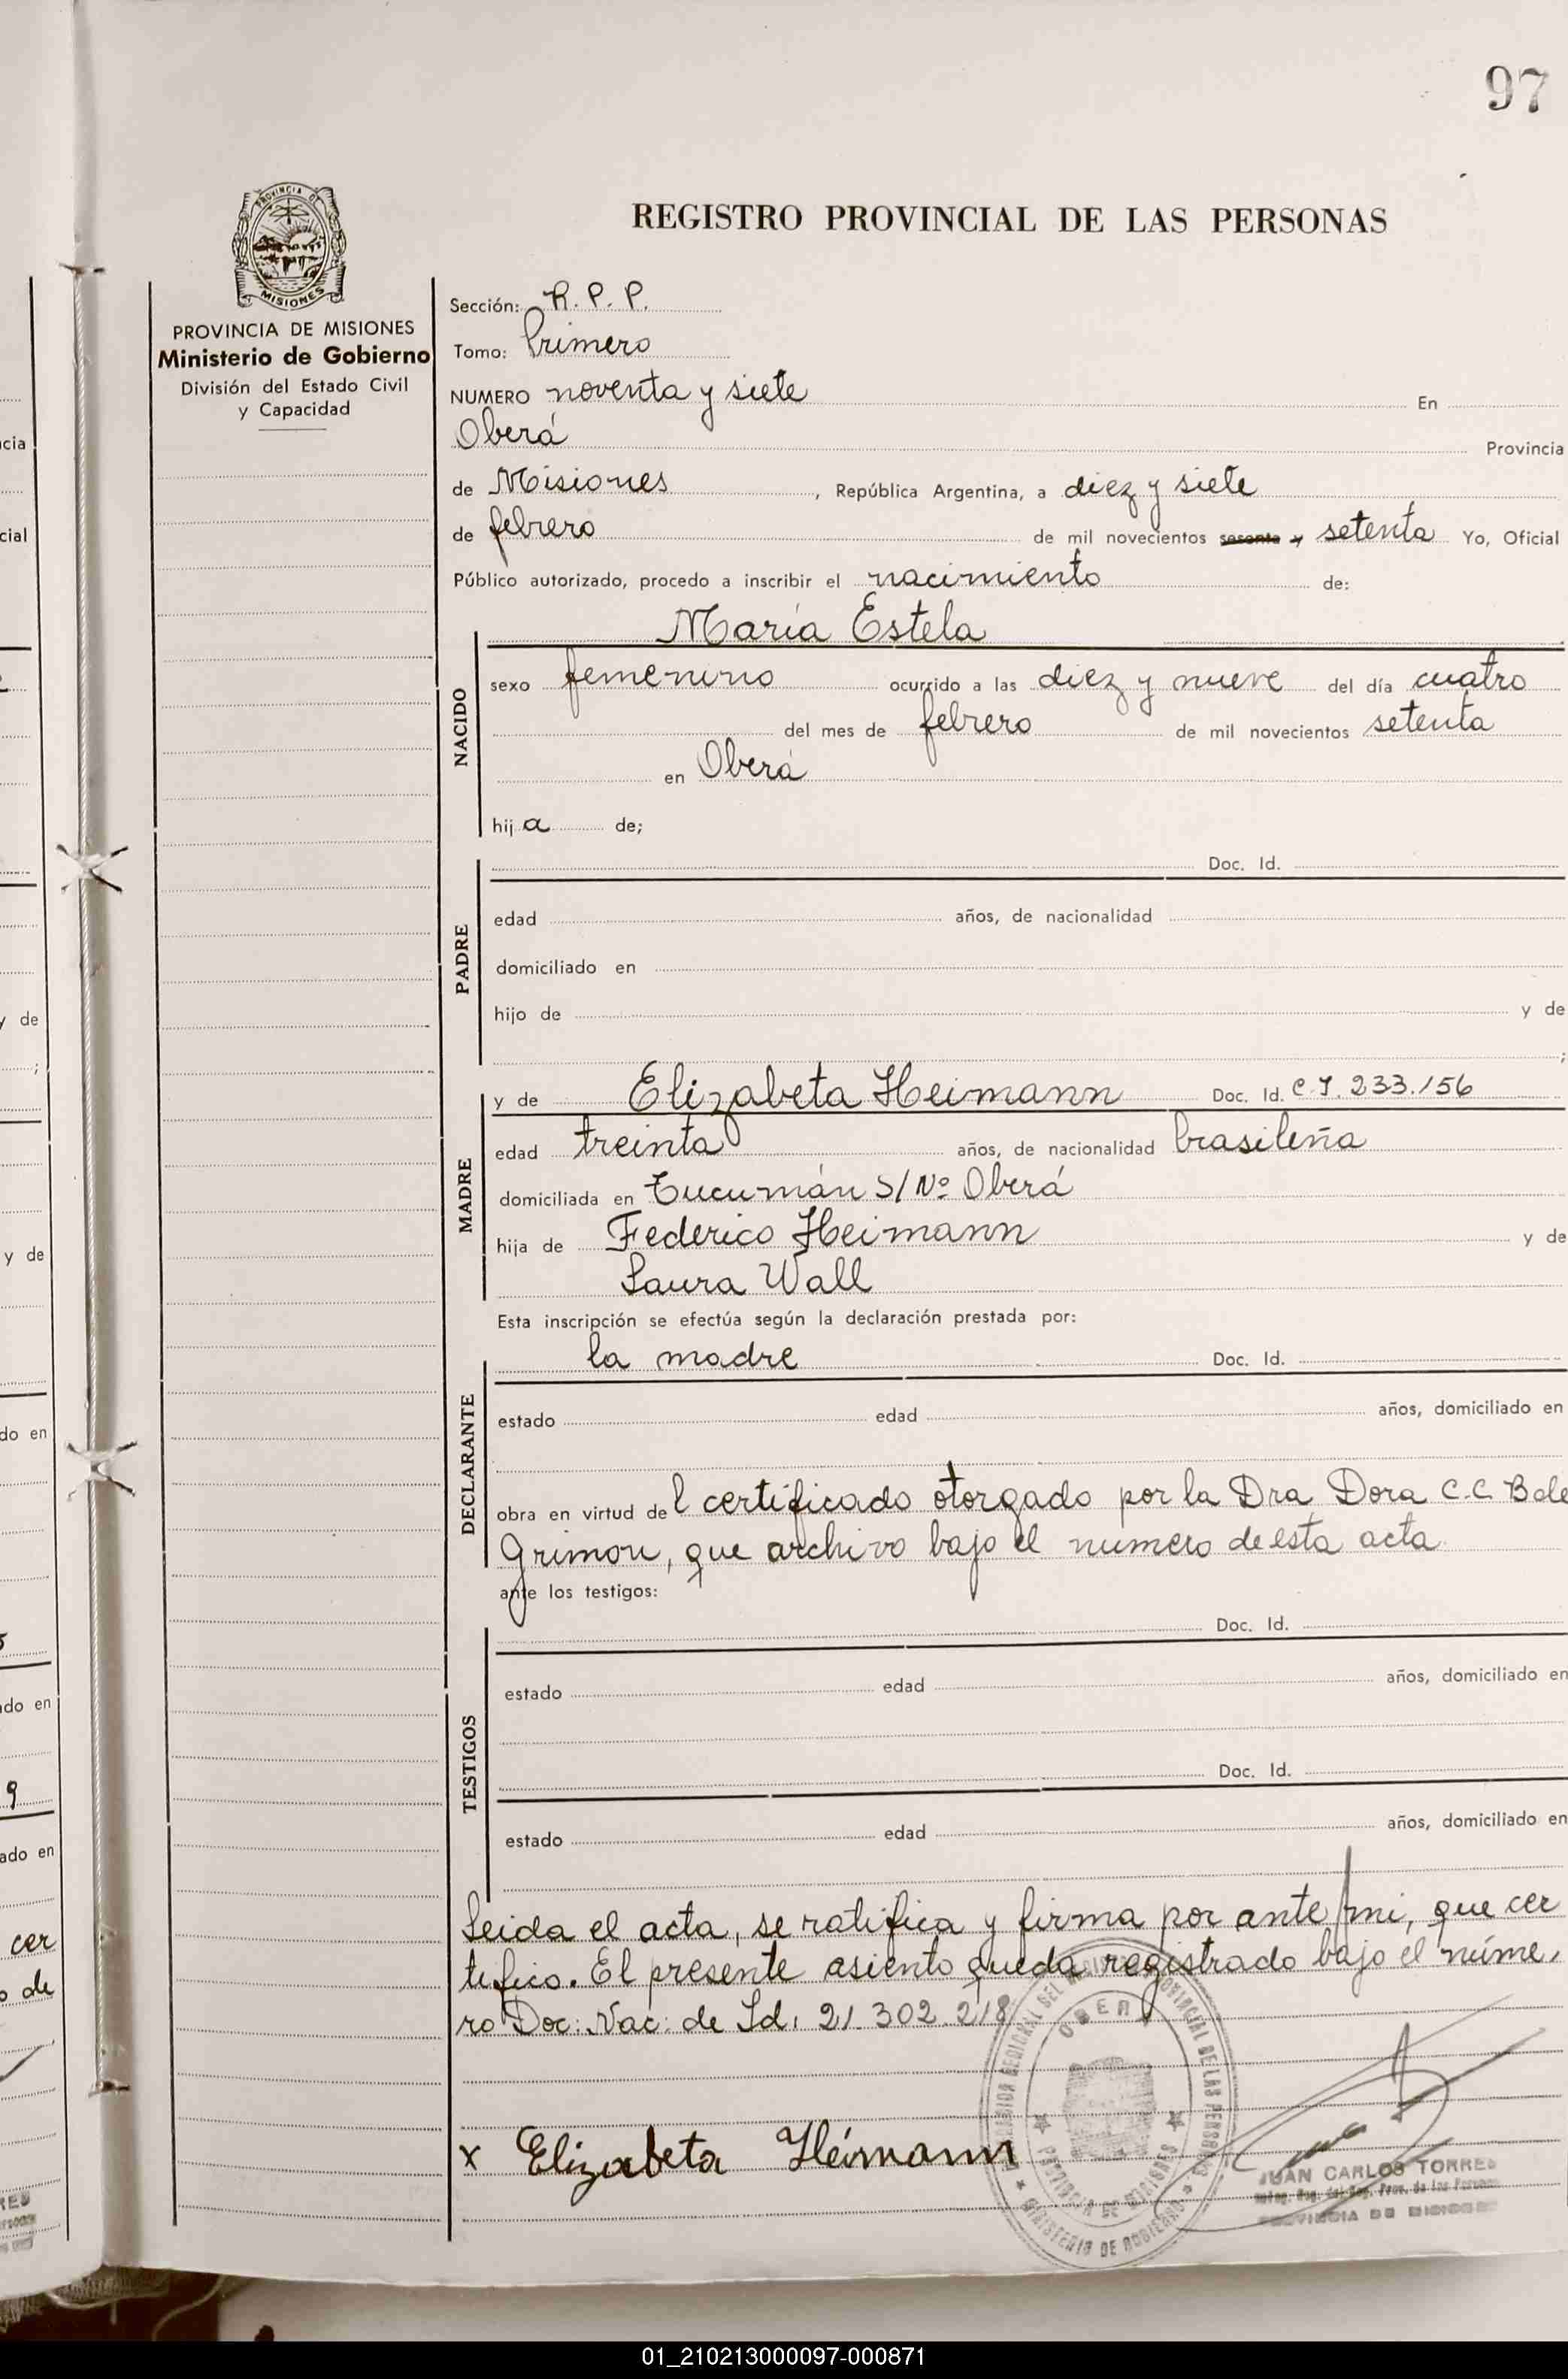 97
REGISTRO PROVINCIAL DE LAS PERSONAS
PROVINCIA DE
MISIONES
PROVINCIA DE MISIONES
Ministerio de Gobierno
División del Estado Civil
y Capacidad
Sección: R. P. P.
Tomo: Primero
NUMERO noventa y siete En
Oberá Provincia
de Misiones, República Argentina, a diez y siete
de febrero de mil novecientos sesenta y setenta Yo, Oficial
Público autorizado, procedo a inscribir el nacimiento de:
María Estela
NACIDO
sexo femenino ocurrido a las diez y nueve del día cuatro
del mes de febrero de mil novecientos setenta
en Oberá
hij a de;
PADRE
Doc. Id.
edad años, de nacionalidad
domiciliado en
hijo de y de
;
MADRE
y de Elizabeta Heimann Doc. Id. C.I. 233.156
edad treinta años, de nacionalidad brasileña
domiciliada en Tucumán S/Nº Oberá
hija de Federico Heimann y de
Laura Wall
Esta inscripción se efectúa según la declaración prestada por:
DECLARANTE
la madre Doc. Id.
estado edad años, domiciliado en
obra en virtud del certificado otorgado por la Dra Dora C.C. Bole
Grimon, que archivo bajo el numero de esta acta
ante los testigos:
TESTIGOS
Doc. Id.
estado edad años, domiciliado en
Doc. Id.
estado edad años, domiciliado en
Leida el acta, se ratifica y firma por ante mi, que cer
tifico. El presente asiento queda registrado bajo el núme,
ro Doc: Nac: de Id. 21.302.218
x Elizabeta Heimann
REGIONAL DEL PROVINCIAL DE LAS PERSONAS
OBERA
PROVINCIA DE MISIONES
MINISTERIO DE GOBIERNO
JUAN CARLOS TORRES
PROVINCIA DE MISIONES
cia
cial
y de
;
y de
do en
ado en
9
ado en
cer
o de
01_210213000097-000871